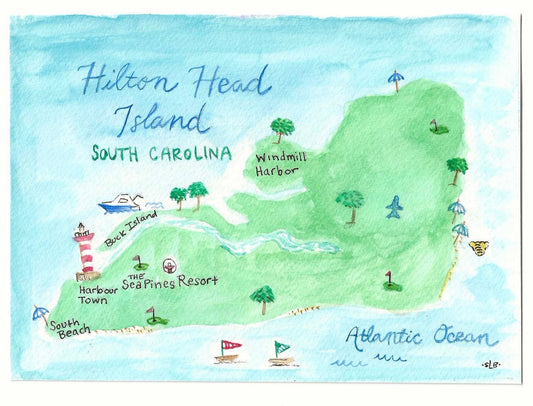 Hilton Head
Island
SOUTH CAROLINA
Windmill
Harbor
Buck Island
THE
Sea Pines Resort
Harbour
Town
South
Beach
Atlantic Ocean
·SLB·